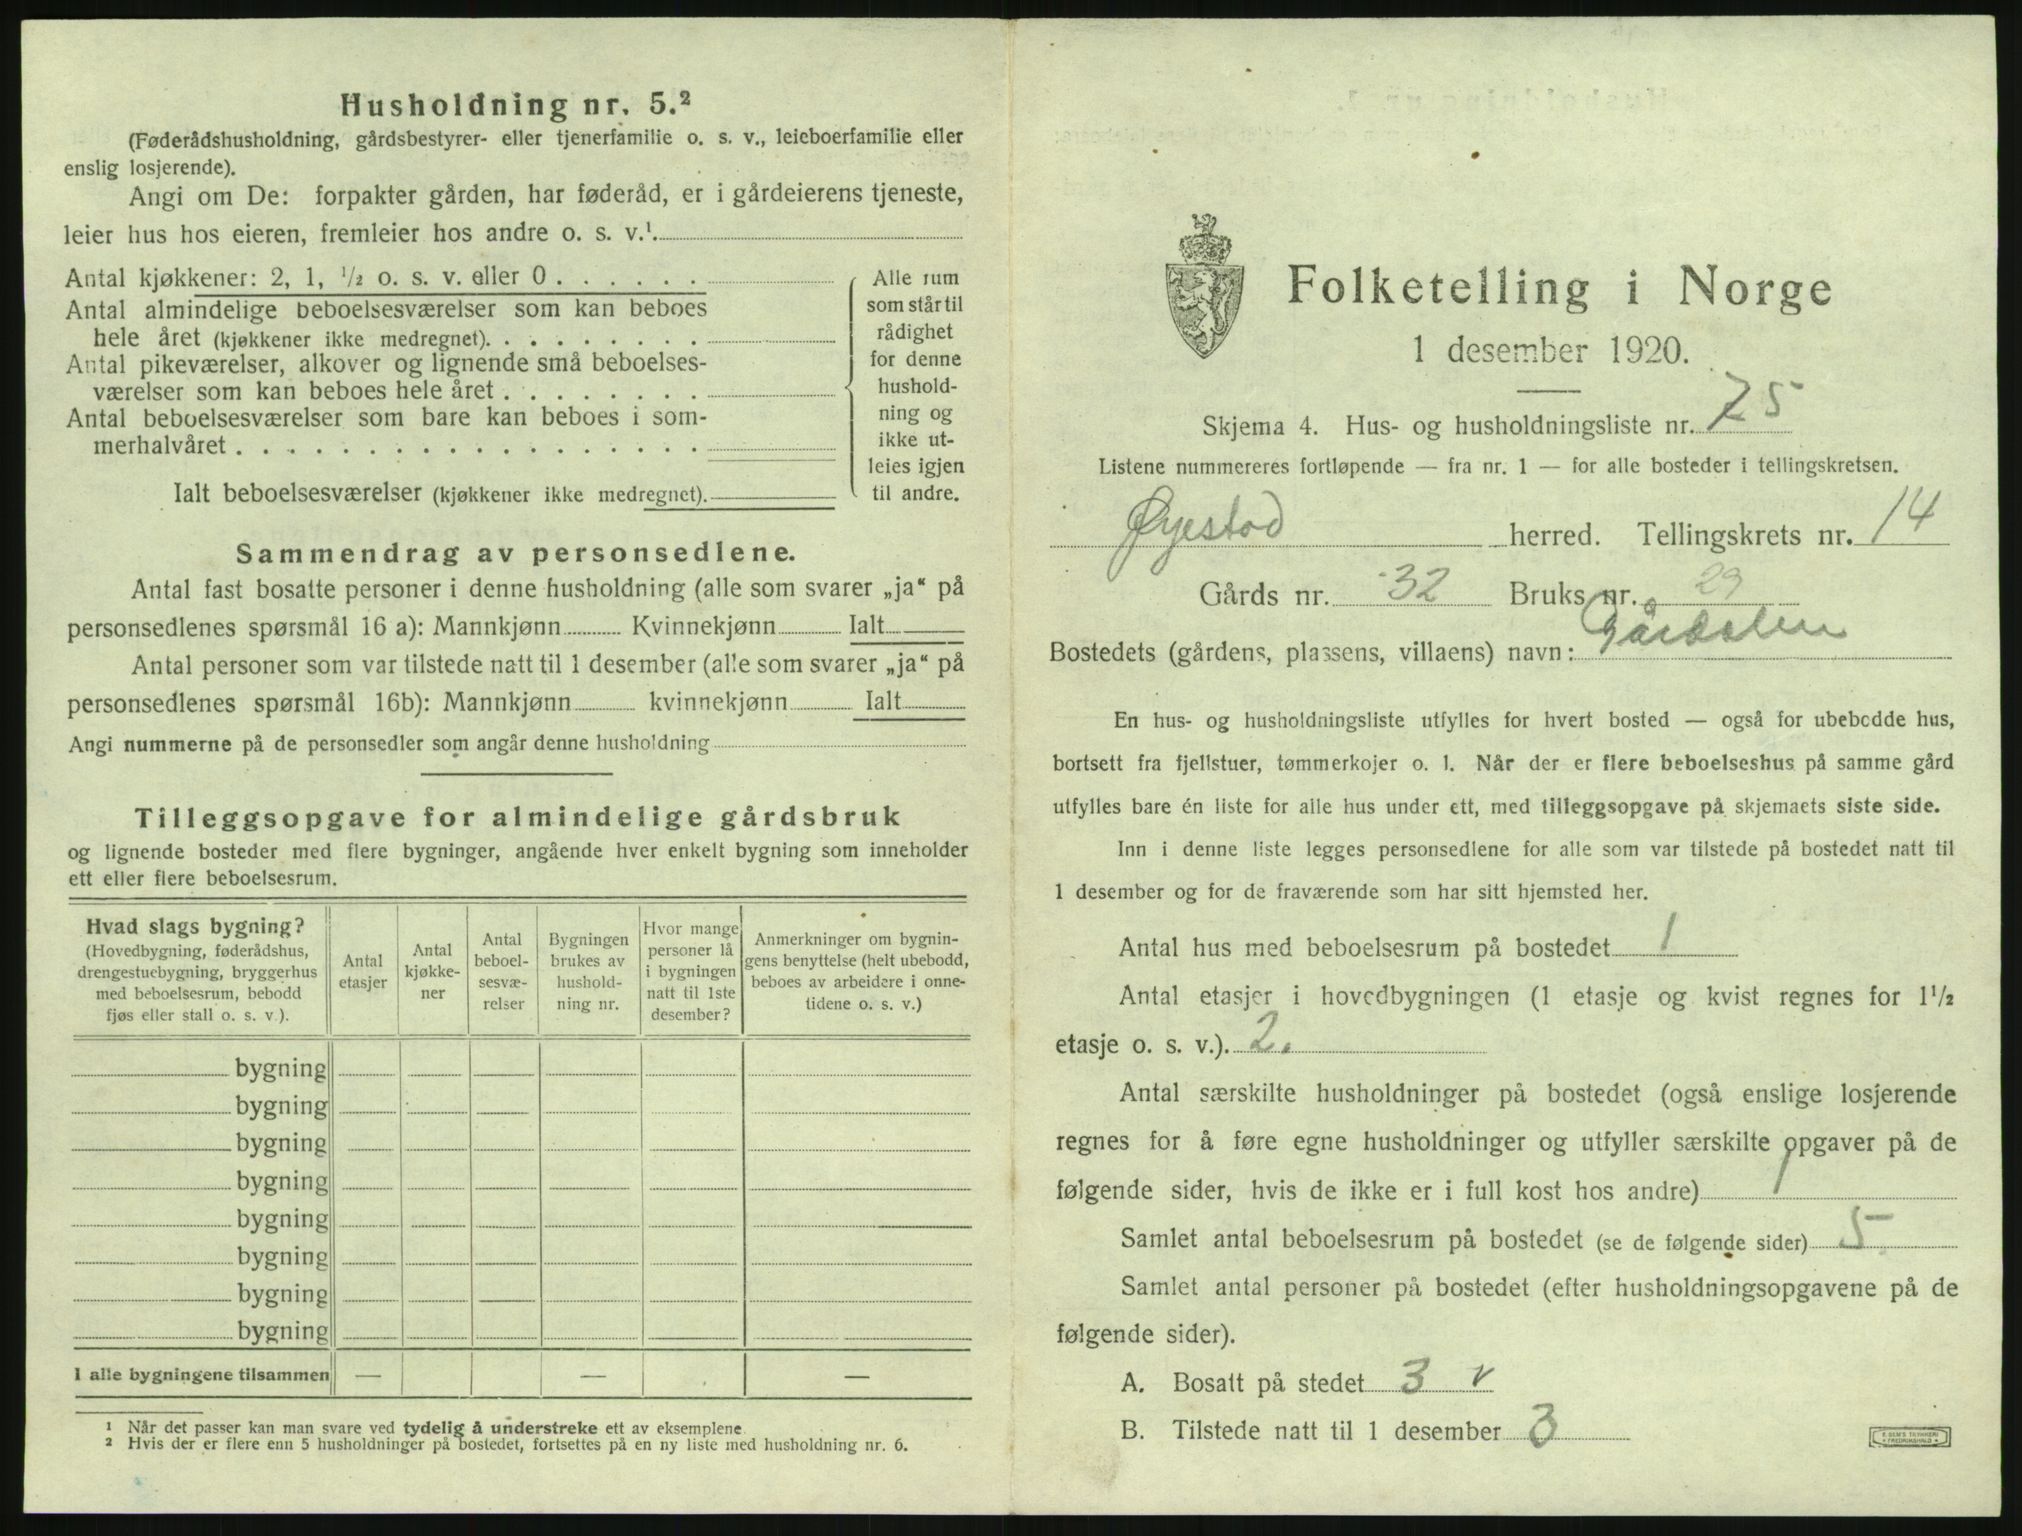 Husholdning nr. 5.²
(Føderådshusholdning, gårdsbestyrer- eller tjenerfamilie o. s. v., leieboerfamilie eller
enslig losjerende).
Angi om De: forpakter gården, har føderåd, er i gårdeierens tjeneste,
leier hus hos eieren, fremleier hos andre o. s. v.¹.
Antal kjøkkener: 2, 1, ½ o. s. v. eller 0 . . . . . .
Antal almindelige beboelsesværelser som kan beboes
hele året (kjøkkener ikke medregnet). . . . . . . . .
Antal pikeværelser, alkover og lignende små beboelses-
værelser som kan beboes hele året . . . . . . . .
Antal beboelsesværelser som bare kan beboes i som-
merhalvåret . . . . . . . . . . . . . . . . . .
Ialt beboelsesværelser (kjøkkener ikke medregnet).
Alle rum
som står til
rådighet
for denne
hushold-
ning og
ikke ut-
leies igjen
til andre.
Sammendrag av personsedlene.
Antal fast bosatte personer i denne husholdning (alle som svarer „ja“ på
personsedlenes spørsmål 16 a): Mannkjønn Kvinnekjønn Ialt
Antal personer som var tilstede natt til 1 desember (alle som svarer „ja“ på
personsedlenes spørsmål 16b): Mannkjønn kvinnekjønn Ialt
Angi nummerne på de personsedler som angår denne husholdning
Tilleggsopgave for almindelige gårdsbruk
og lignende bosteder med flere bygninger, angående hver enkelt bygning som inneholder
ett eller flere beboelsesrum.
Hvad slags bygning?
(Hovedbygning, føderådshus,
drengestuebygning, bryggerhus
med beboelsesrum, bebodd
fjøs eller stall o. s. v.).
Antal
etasjer
Antal
kjøkke-
ner
Antal
beboel-
sesvæ-
relser
Bygningen
brukes av
hushold-
ning nr.
Hvor mange
personer lå
i bygningen
natt til 1ste
desember?
Anmerkninger om bygnin-
gens benyttelse (helt ubebodd,
beboes av arbeidere i onne-
tidene o. s. v.)
bygning
bygning
bygning
bygning
bygning
bygning
bygning
bygning
I alle bygningene tilsammen — — —
¹ Når det passer kan man svare ved tydelig å understreke ett av eksemplene.
² Hvis der er flere enn 5 husholdninger på bostedet, fortsettes på en ny liste med husholdning nr. 6.
Folketelling i Norge
1 desember 1920.
Skjema 4. Hus- og husholdningsliste nr. 75
Listene nummereres fortløpende — fra nr. 1 — for alle bosteder i tellingskretsen.
Øyestad herred. Tellingskrets nr. 14
Gårds nr. 32 Bruks nr. 29
Bostedets (gårdens, plassens, villaens) navn:
En hus- og husholdningsliste utfylles for hvert bosted — også for ubebodde hus,
bortsett fra fjellstuer, tømmerkojer o. l. Når der er flere beboelseshus på samme gård
utfylles bare én liste for alle hus under ett, med tilleggsopgave på skjemaets siste side.
Inn i denne liste legges personsedlene for alle som var tilstede på bostedet natt til
1 desember og for de fraværende som har sitt hjemsted her.
Antal hus med beboelsesrum på bostedet 1
Antal etasjer i hovedbygningen (1 etasje og kvist regnes for 1½
etasje o. s. v.). 2.
Antal særskilte husholdninger på bostedet (også enslige losjerende
regnes for å føre egne husholdninger og utfyller særskilte opgaver på de
følgende sider, hvis de ikke er i full kost hos andre) 1
Samlet antal beboelsesrum på bostedet (se de følgende sider) 5
Samlet antal personer på bostedet (efter husholdningsopgavene på de
følgende sider).
A. Bosatt på stedet 3 v
B. Tilstede natt til 1 desember 3
E. SEM'S TRYKKERI
FREDRIKSHALD